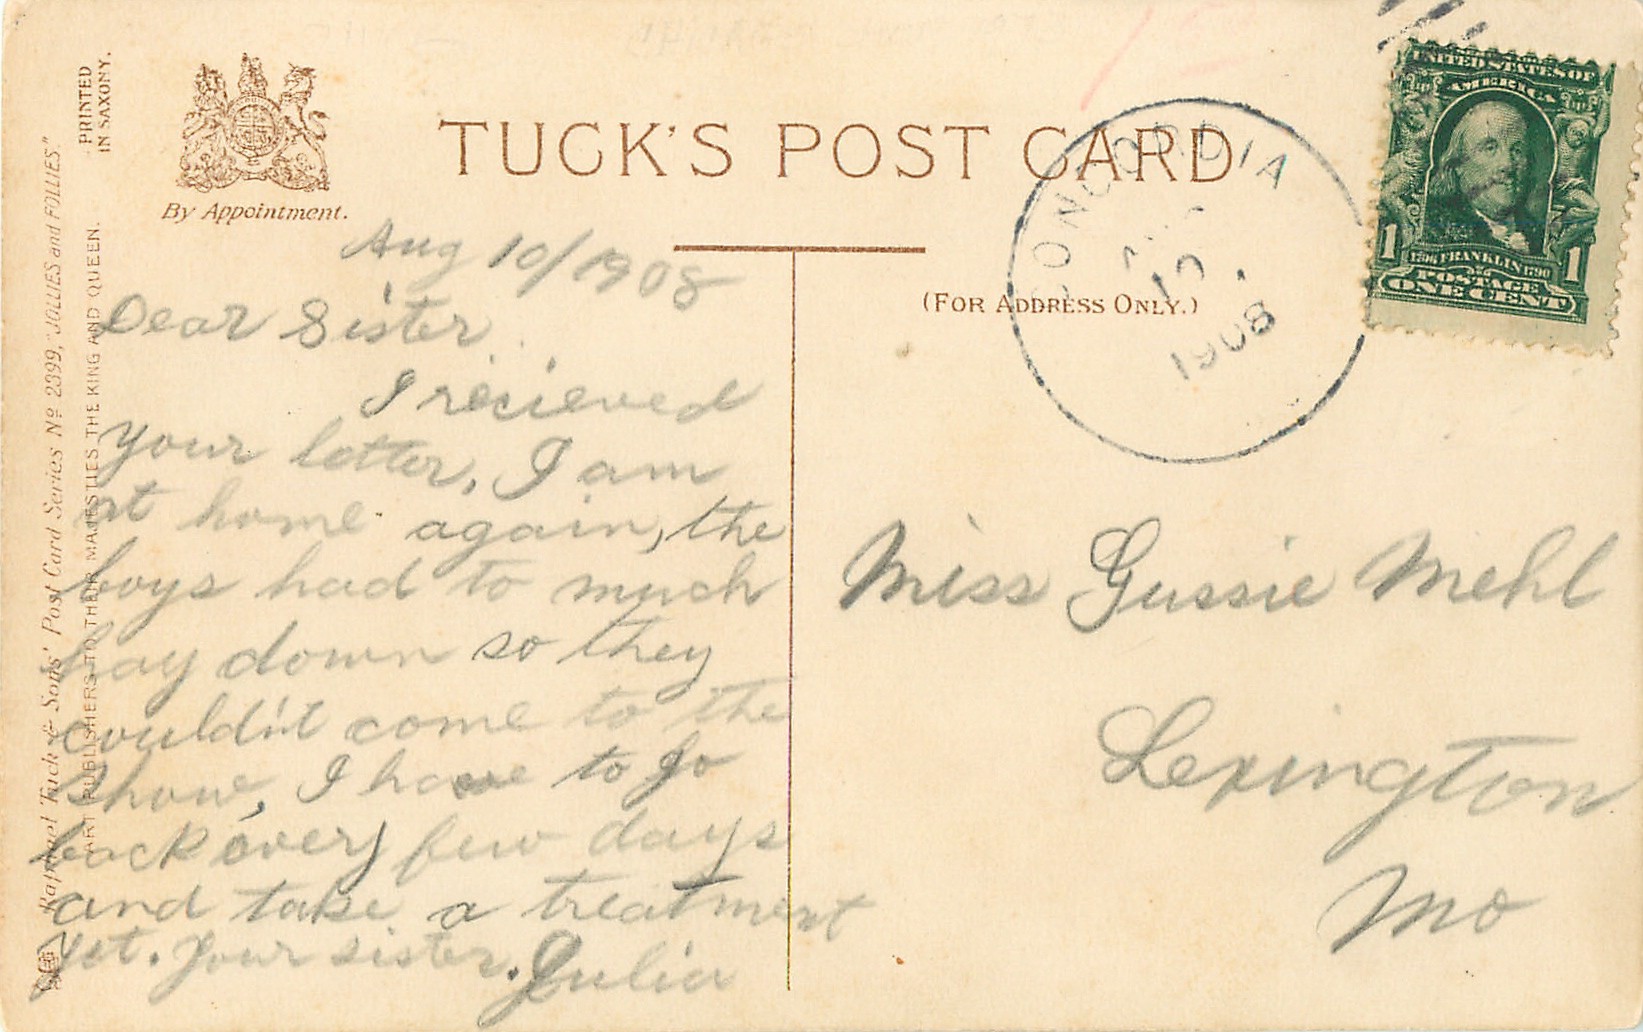 PRINTED
IN SAXONY.
Raphael Tuck & Sons' Post Card Series Nº 2399, "JOLLIES and FOLLIES."
ART PUBLISHERS TO THEIR MAJESTIES THE KING AND QUEEN.
By Appointment.
TUCK'S POST CARD
(FOR ADDRESS ONLY.)
CONCORDIA
10
1908
UNITED STATES OF
AMERICA
1706 FRANKLIN 1790
POSTAGE
1 ONE CENT 1
Aug 10/1908
Dear Sister
I recieved
your letter, I am
at home again, the
boys had to much
hay down so they
couldn't come to the
show, I have to go
back every few days
and take a treatment
yet. Your sister. Julia
Miss Gussie Mehl
Lexington
Mo